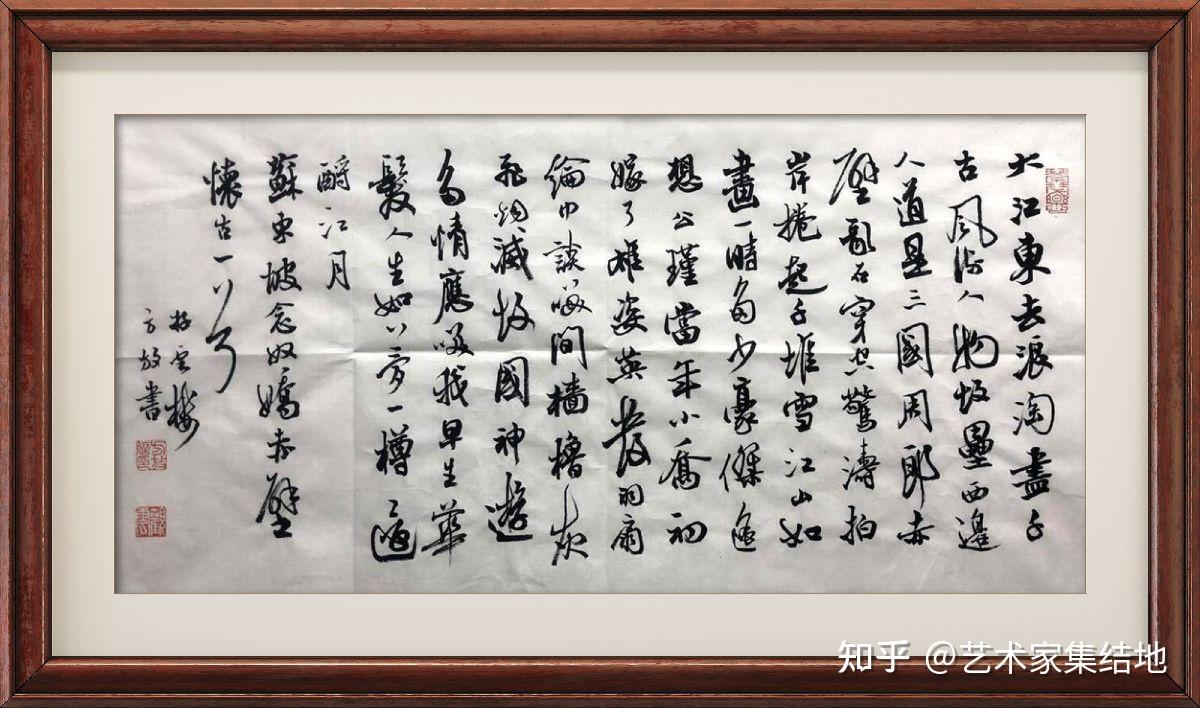 大江東去浪淘盡千
古風流人物故壘西邊
人道是三國周郎赤
壁亂石穿空驚濤拍
岸捲起千堆雪江山如
畫一時多少豪傑遙
想公瑾當年小喬初
嫁了雄姿英發羽扇
綸巾談笑間檣櫓灰
飛煙滅故國神遊
多情應笑我早生華
髮人生如夢一樽還
酹江月
蘇東坡念奴嬌赤壁
懷古一首
雲樓
方放書
知乎 @艺术家集结地